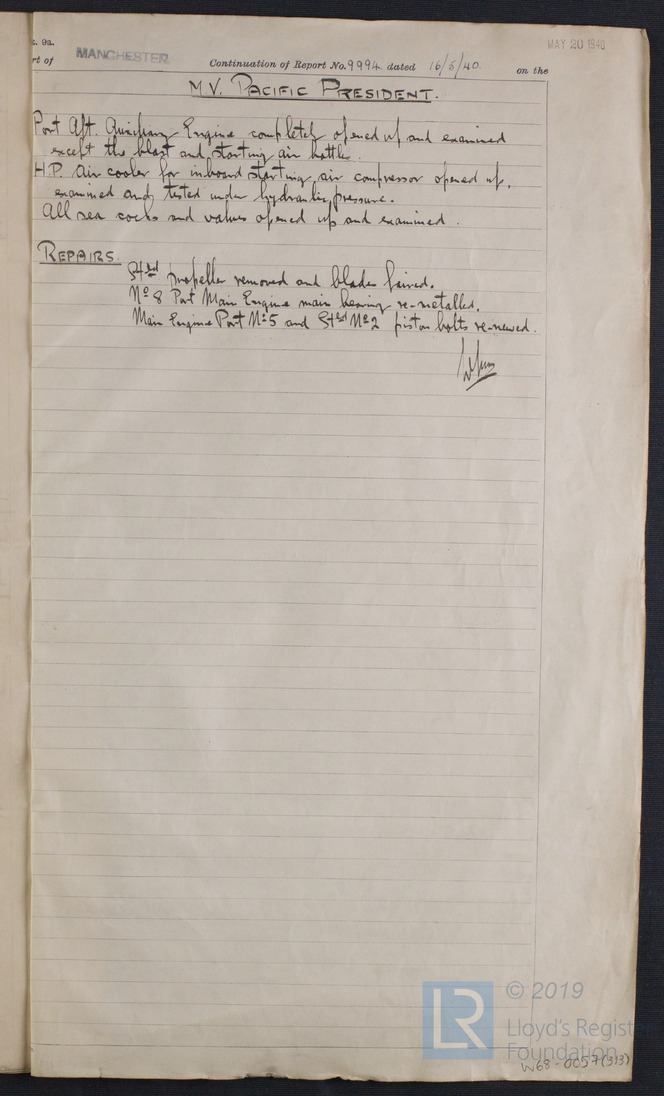 t. 9a.
rt of MANCHESTER
MAY 20 1940
Continuation of Report No. 9994 dated 16/5/40 on the
M.V. PACIFIC PRESIDENT.
Port Aft. Auxiliary Engine completely opened up and examined
except the blast and starting air bottles.
H.P. air cooler for inboard starting air compressor opened up,
examined and tested under hydraulic pressure.
All sea cocks and valves opened up and examined.
REPAIRS.
Stbd propeller removed and blades faired.
No 8 Port Main Engine main bearing re-metalled.
Main Engine Port No 5 and Stbd No 2 piston bolts re-newed.
LR
© 2019
Lloyd's Register
Foundation
W68-0057(3/3)